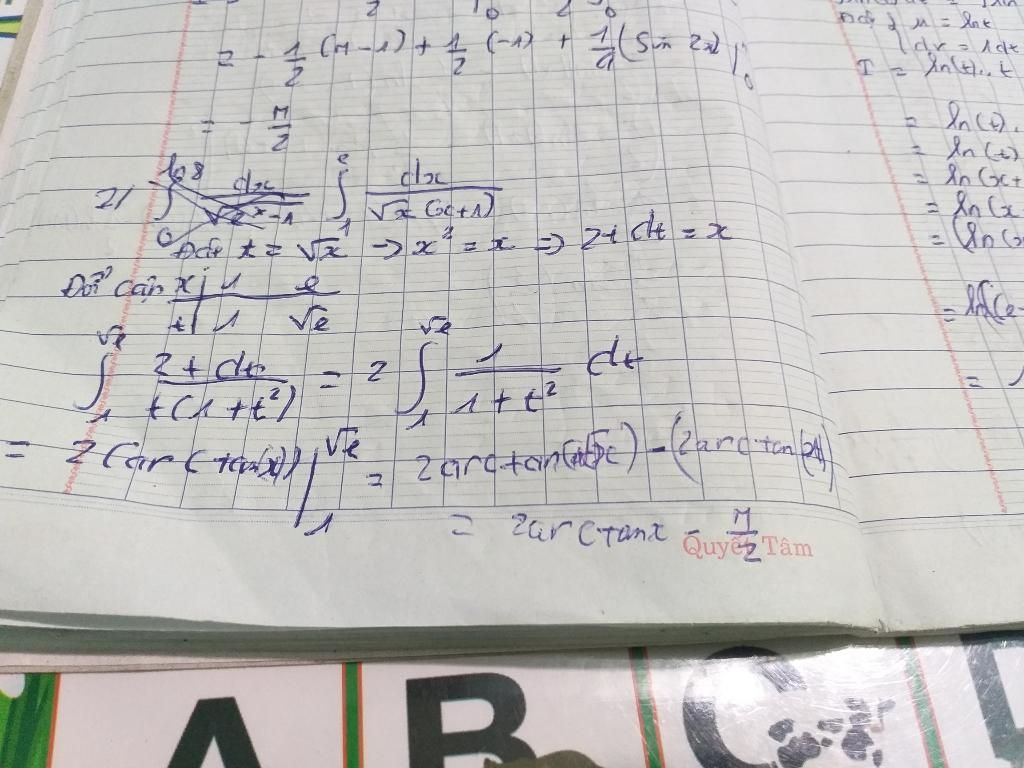 = - 1/2 (π - 1) + 1/2 (-1) + 1/4 (Sin 2x) |0
= - π/2
2/ ∫ dx ∫_1^e dx/(√x (x+1))
Đặt t = √x → x² = x ⇒ 2t dt = x
Đổi cận x | 1 e
t | 1 √e
∫_1^√e 2t dt/(t(1+t²)) = 2 ∫_1^√e 1/(1+t²) dt
= 2 (arc tan(x)) |_1^√e = 2 arc tan( ) - (2 arc tan( ))
= 2 arc tan x - π/2
Quyết Tâm
Đặt { u = ln t
dv = 1dt
I = ln(t) . t
= ln(t).
= ln(t)
= ln(x+
= ln(x
= (ln(x
= ln(e-
=
A B C